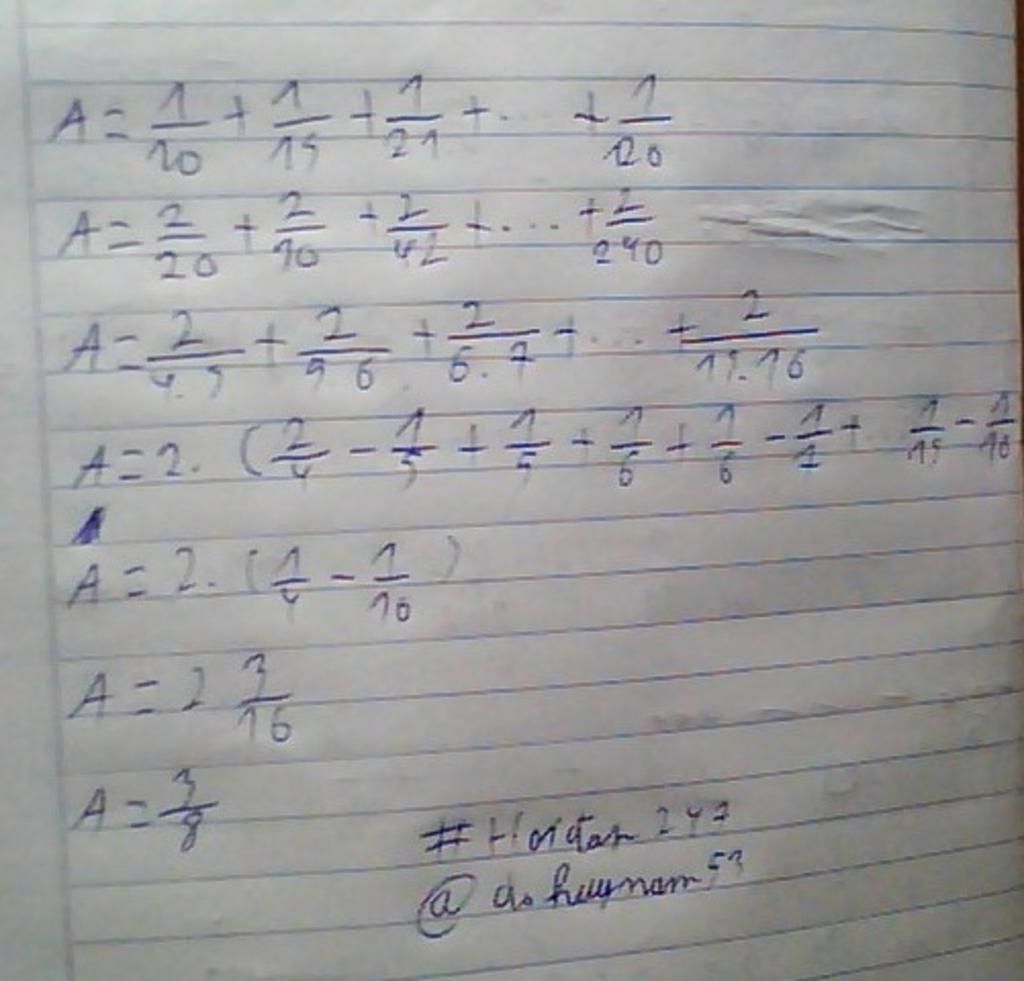 A = 1/10 + 1/15 + 1/21 + ... + 1/120
A = 2/20 + 2/30 + 2/42 + ... + 2/240
A = 2/4.5 + 2/5.6 + 2/6.7 + ... + 2/15.16
A = 2. (2/4 - 1/5 + 1/5 + 1/6 + 1/6 - 1/7 + .. 1/15 - 1/16
A = 2. (1/4 - 1/16)
A = 2 3/16
A = 3/8
# Hoidap 247
@ dohuynam53